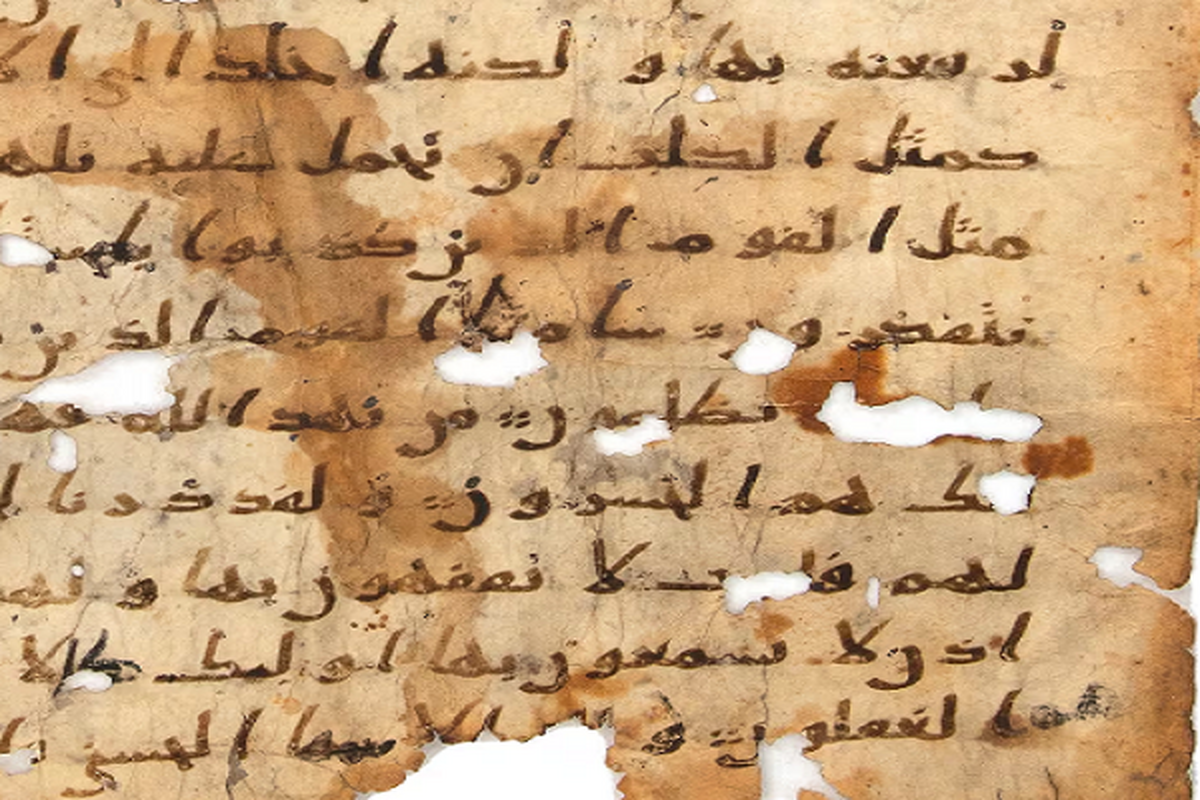 لرفعنه بها ولكنه اخلد الى الا
كمثل الكلب ان تحمل عليه يلهـ
مثل القوم الذين كذبوا بايتـ
يتفكرون سا مثلا القوم الذين
يظلمون من يهد الله فهو
ـك هم الخسرون ولقد ذرانا
لهم قلوب لا يفقهون بها ولهم
اذان لا يسمعون بها اولئك كالا
الغفلون و الاسما الحسنى